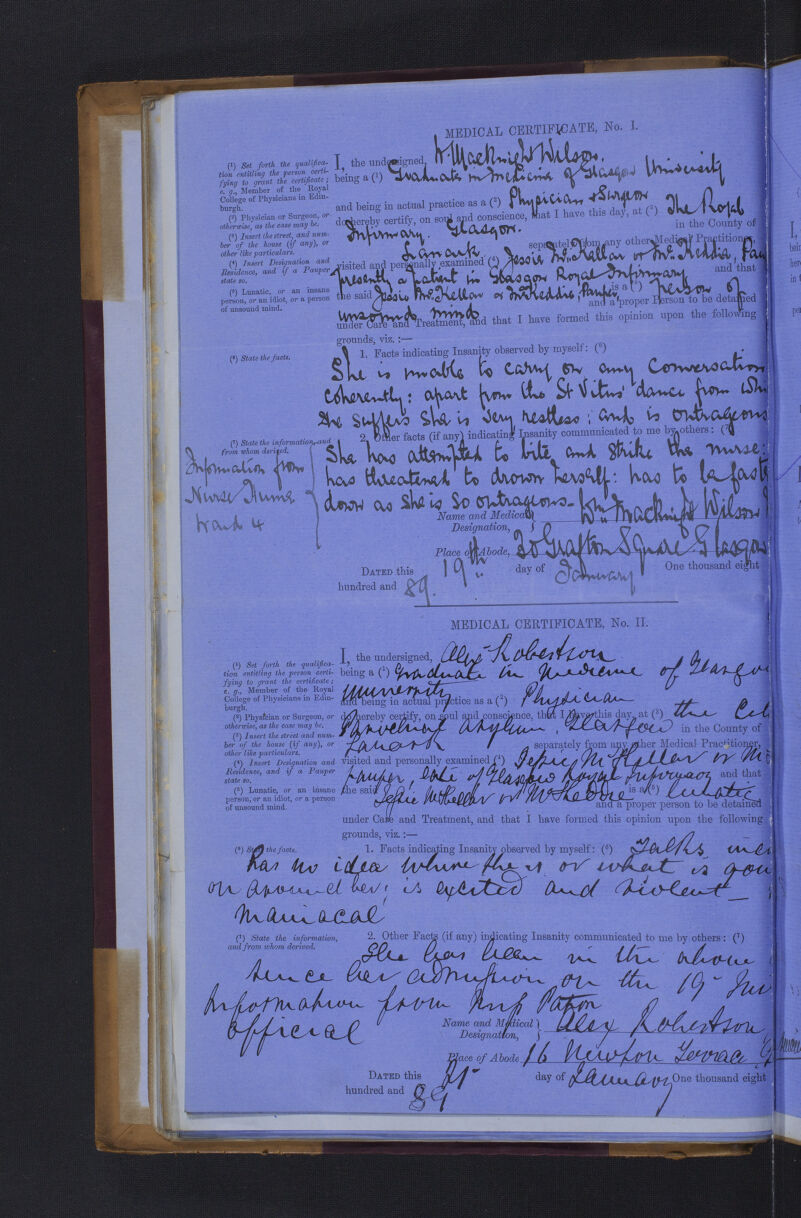 MEDICAL CERTIFICATE, No. I.
(¹) Set forth the qualifica-
tion entitling the person certi-
fying to grant the certificate;
e. g., Member of the Royal
College of Physicians in Edin-
burgh.
(²) Physician or Surgeon, or
otherwise, as the case may be.
(³) Insert the street, and num-
ber of the house (if any), or
other like particulars.
(⁴) Insert Designation and
Residence, and if a Pauper
state so.
(⁵) Lunatic, or an insane
person, or an idiot, or a person
of unsound mind.
I, the undersigned, Wm Macknight Wilson.
being a (¹) Graduate in Medicine of Glasgow University
and being in actual practice as a (²) Physician & Surgeon
do hereby certify, on soul and conscience, that I have this day, at (³) The Royal
Infirmary. Glasgow. in the County of
Lanark separately from any other Medical Practitioner,
visited and personally examined (⁴) Jessie McKellar or McKeddie, Pau
presently a patient in Glasgow Royal Infirmary and that
the said Jessie McKellar or McKeddie, Pauper, is a (⁵) Person of
unsound mind and a proper Person to be detained
under Care and Treatment, and that I have formed this opinion upon the following
grounds, viz. :—
(⁶) State the facts.
1. Facts indicating Insanity observed by myself: (⁶)
She is unable to carry on any Conversation
coherently: apart from the St Vitus' dance from wh
she suffers she is very restless; and is outrageous
(⁷) State the information, and
from whom derived.
2. Other facts (if any) indicating Insanity communicated to me by others: (⁷)
Information from
Nurse
Ward 4
She has attempted to bite and strike the nurse:
has threatened to drown herself: has to be fast
down as she is so outrageous-
Name and Medical
Designation, Wm. Macknight Wilson
Place of Abode, 20 Grafton Square Glasgow
DATED this 19th day of January One thousand eight
hundred and 89.
MEDICAL CERTIFICATE, No. II.
(¹) Set forth the qualifica-
tion entitling the person certi-
fying to grant the certificate;
e. g., Member of the Royal
College of Physicians in Edin-
burgh.
(²) Physician or Surgeon, or
otherwise, as the case may be.
(³) Insert the street and num-
ber of the house (if any), or
other like particulars.
(⁴) Insert Designation and
Residence, and if a Pauper
state so.
(⁵) Lunatic, or an insane
person, or an idiot, or a person
of unsound mind.
I, the undersigned, Alex Robertson
being a (¹) Graduate in Medicine of Glasgow
University
and being in actual practice as a (²) Physician
do hereby certify, on soul and conscience, that I have this day, at (³) the Cit
Parochial Asylum, Glasgow in the County of
Lanark separately from any other Medical Practitioner,
visited and personally examined (⁴) Jessie McKellar or Mc
Pauper, late of Glasgow Royal Infirmary and that
the said Jessie McKellar or McKeddie is a (⁵) lunatic
and a proper person to be detained
under Care and Treatment, and that I have formed this opinion upon the following
grounds, viz. :—
(⁶) State the facts.
1. Facts indicating Insanity observed by myself: (⁶) Talks inco
has no idea where she is or what is goin
on around her; is excited and violent —
maniacal
(⁷) State the information,
and from whom derived.
2. Other Facts (if any) indicating Insanity communicated to me by others: (⁷)
She has been in the above
since her admission on the 19th
Information from Miss Paton
official
Name and Medical
Designation, Alex Robertson
Place of Abode 16 Newton Terrace G
DATED this 21st day of January One thousand eight
hundred and 89